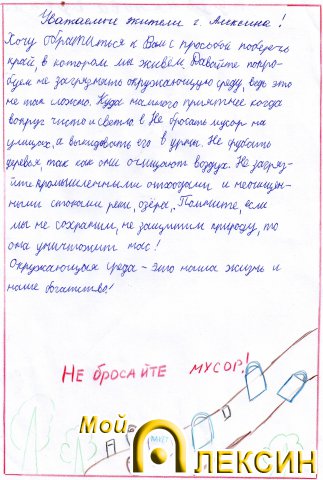 Уважаемые жители г. Алексина!
Хочу обратиться к Вам с просьбой поберечь
край, в котором мы живём. Давайте попро-
буем не загрязнять окружающую среду, ведь это
не так сложно. Куда намного приятнее когда
вокруг чисто и светло. Не бросать мусор на
улицах, а выкидывать его в урны. Не рубить
деревья так как они очищают воздух. Не загряз-
йте промышленными отходами и неочищен-
ными стоками реки, озёра. Помните, если
мы не сохраним, не защитим природу, то
она уничтожит нас!
Окружающая среда - это наша жизнь и
наше богатство!
НЕ бросайте мусор!
Мой
Алексин